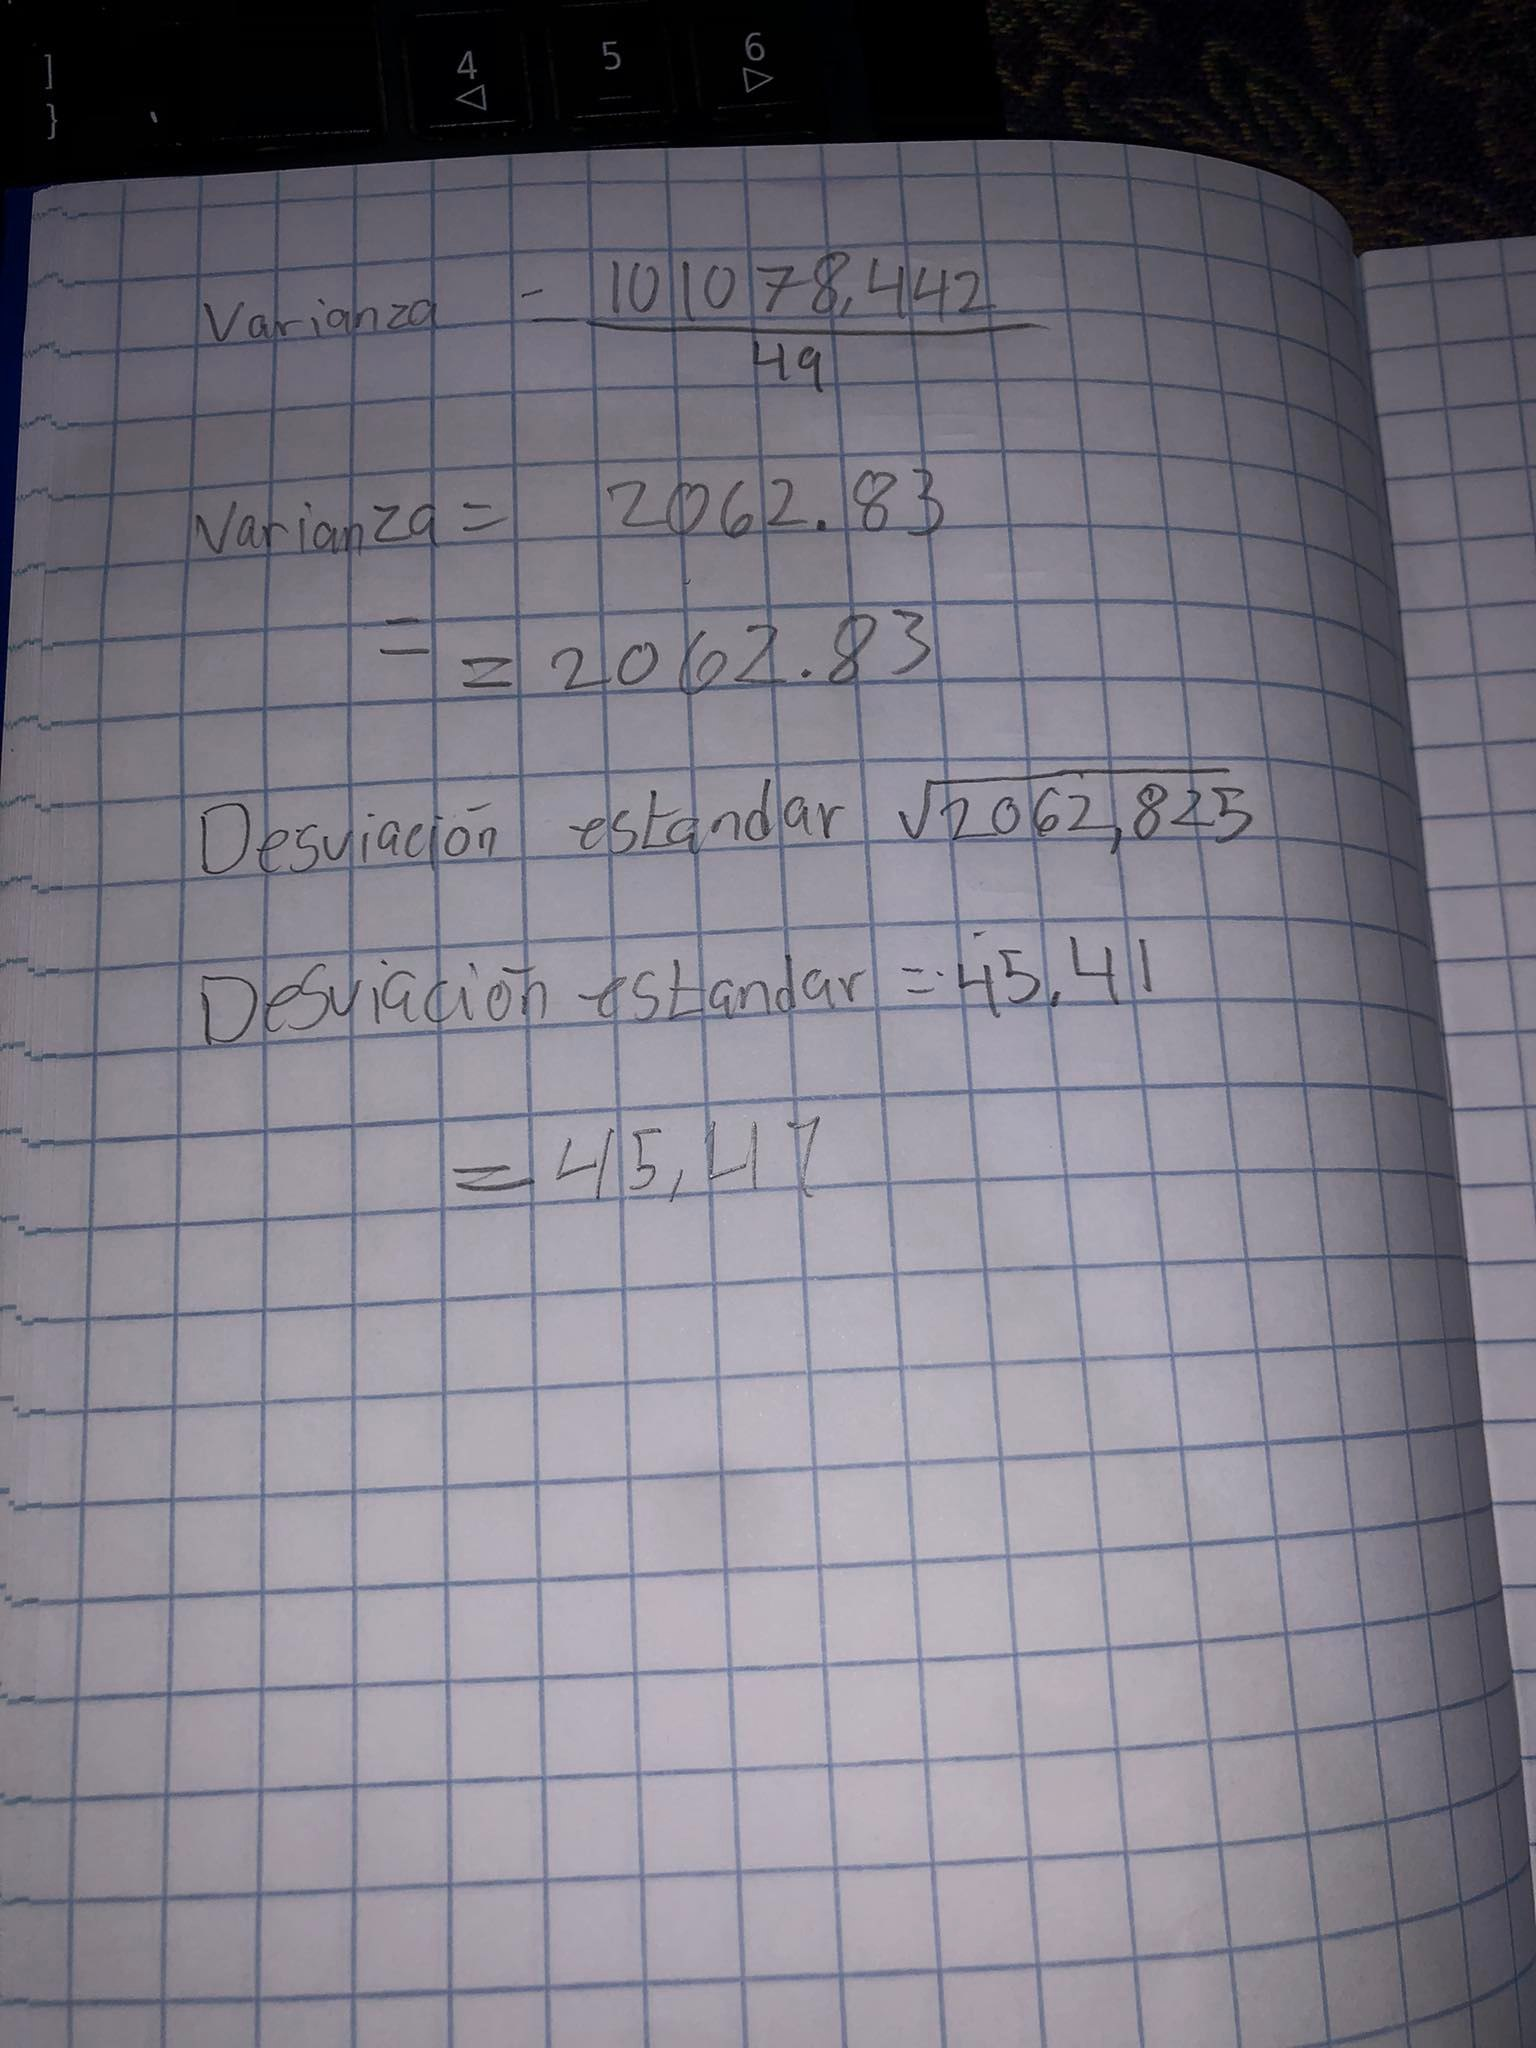 ] 4 5 6
}
Varianza = 101078,442
49
Varianza = 2062.83
= = 2062.83
Desviación estandar √2062,825
Desviación estandar = 45,41
= 45,41